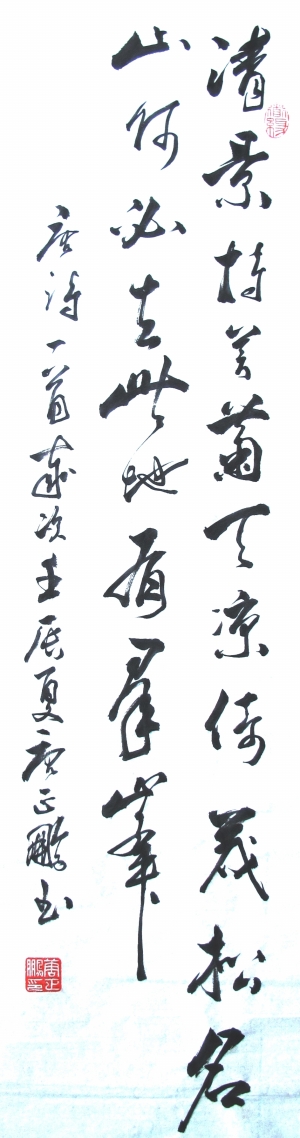 清景持芳菊天凉倚茂松名
山何必去此地有羣峯
唐诗一首歲次壬辰夏唐正鵬书